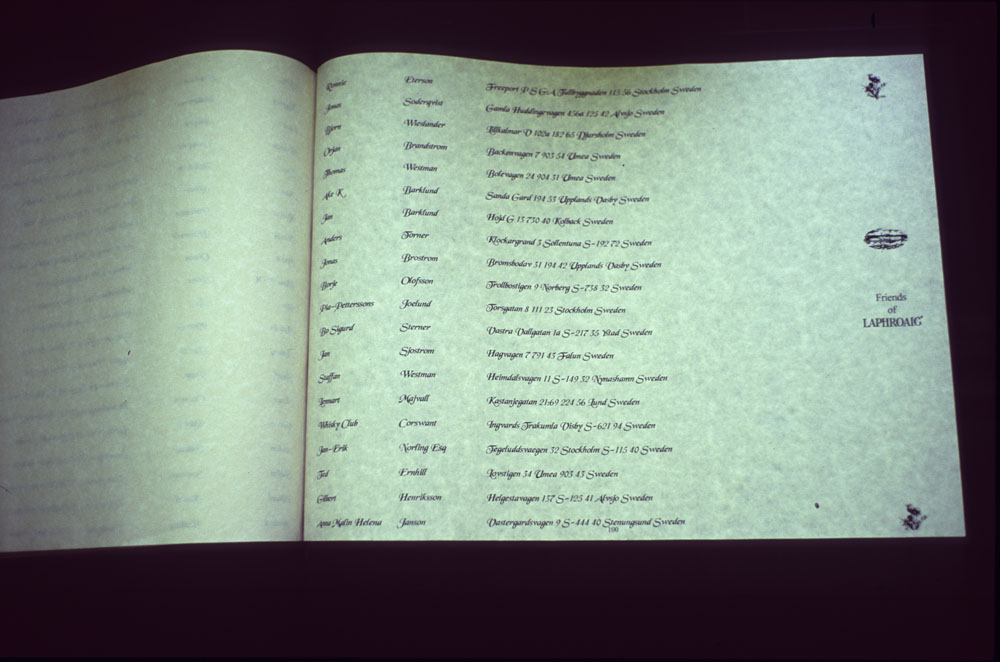 Ronnie Eterson Freeport P S G A Tallbyggnaden 113 56 Stockholm Sweden
Jonas Soderqvist Gamla Huddingevagen 456a 125 42 Alvsjo Sweden
Bjorn Wieslander Lillkalmar D 100a 182 65 Djursholm Sweden
Orjan Brandstrom Backenvagen 7 903 54 Umea Sweden
Thomas Westman Bolevagen 24 904 31 Umea Sweden
Ake K. Barklund Sanda Gard 194 55 Upplands Vasby Sweden
Jan Barklund Hojd G 13 730 40 Kolback Sweden
Anders Torner Klockargrand 3 Sollentuna S-192 72 Sweden
Jonas Brostrom Bromsbodav 31 194 42 Upplands Vasby Sweden
Borje Olofsson Trollbostigen 9 Norberg S-738 32 Sweden
Pia-Petterssons Joelund Torsgatan 8 111 23 Stockholm Sweden
Bo Sigurd Sterner Vastra Vallgatan 1a S-217 55 Ystad Sweden
Jan Sjostrom Hagvagen 7 791 43 Falun Sweden
Staffan Westman Heimdalsvagen 11 S-149 52 Nynashamn Sweden
Lennart Majvall Kastanjegatan 21:69 224 56 Lund Sweden
Whisky Club Corswant Ingvards Trakumla Visby S-621 94 Sweden
Jan-Erik Norfing Esq Tegeluddsvaegen 32 Stockholm S-115 40 Sweden
Ted Ernhill Lovstigen 34 Umea 903 43 Sweden
Gilbert Henriksson Helgestavagen 137 S-125 41 Alvsjo Sweden
Anna Malin Helena Janson Vastergardsvagen 9 S-444 40 Stenungsund Sweden
190
Friends
of
LAPHROAIG